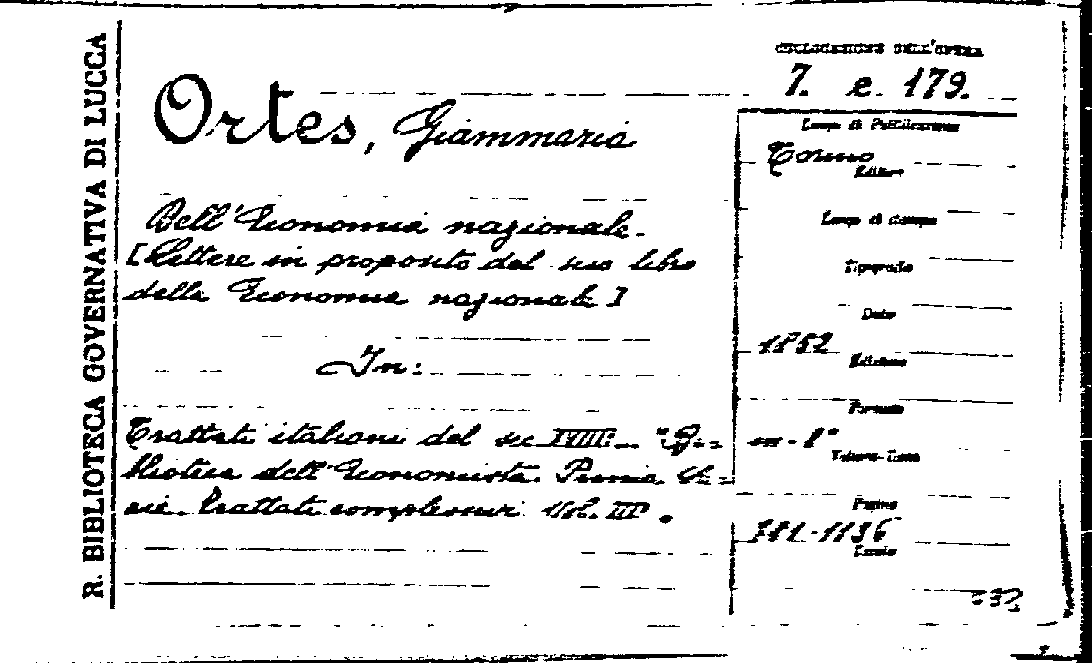 R. BIBLIOTECA GOVERNATIVA DI LUCCA
COLLOCAZIONE DELL'OPERA
7. e. 179.
Ortes, Giammaria
Dell'Economia nazionale.
[Lettere in proposito del suo libro
della Economia nazionale]
In:
Trattati italiani del sec XVIII. "Bi=
blioteca dell'Economista. Prima Se=
rie. Trattati complessivi Vol. III.
Luogo di Pubblicazione
Torino
Editore
Luogo di stampa
Tipografia
Data
1852
Edizione
Formato
in-8°
Volume-Tomo
Pagine
-1136
Tavole